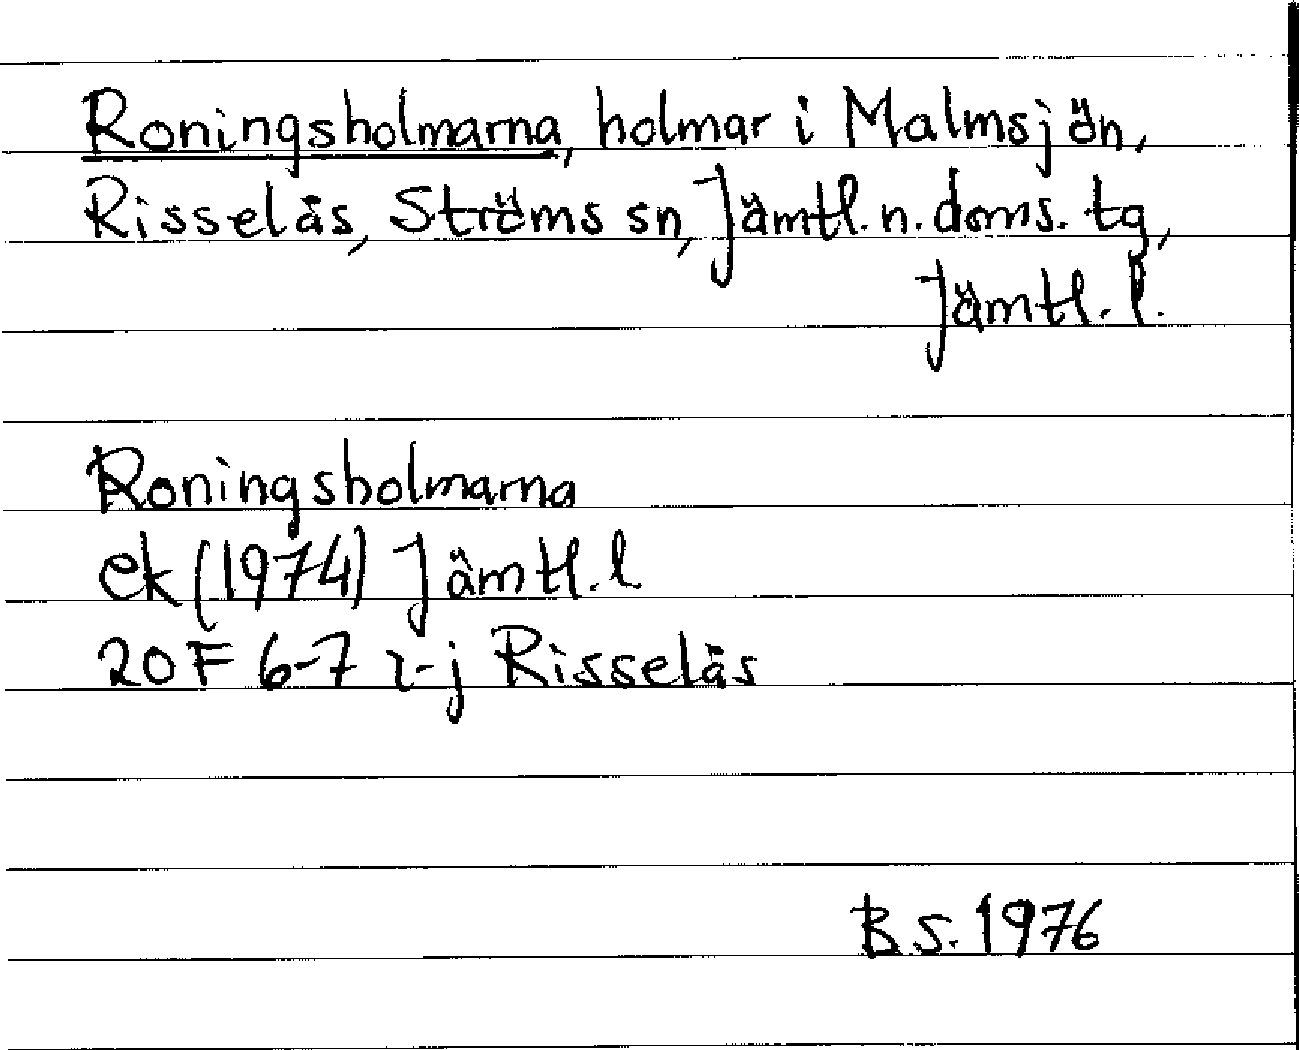 Roningsholmarna, holmar i Malmsjön,
Risselås, Ströms sn, Jämtl. n. doms. tg,
Jämtl. l.
Roningsholmarna
ek (1974) Jämtl. l
20 F 6-7 i-j Risselås
B.S. 1976